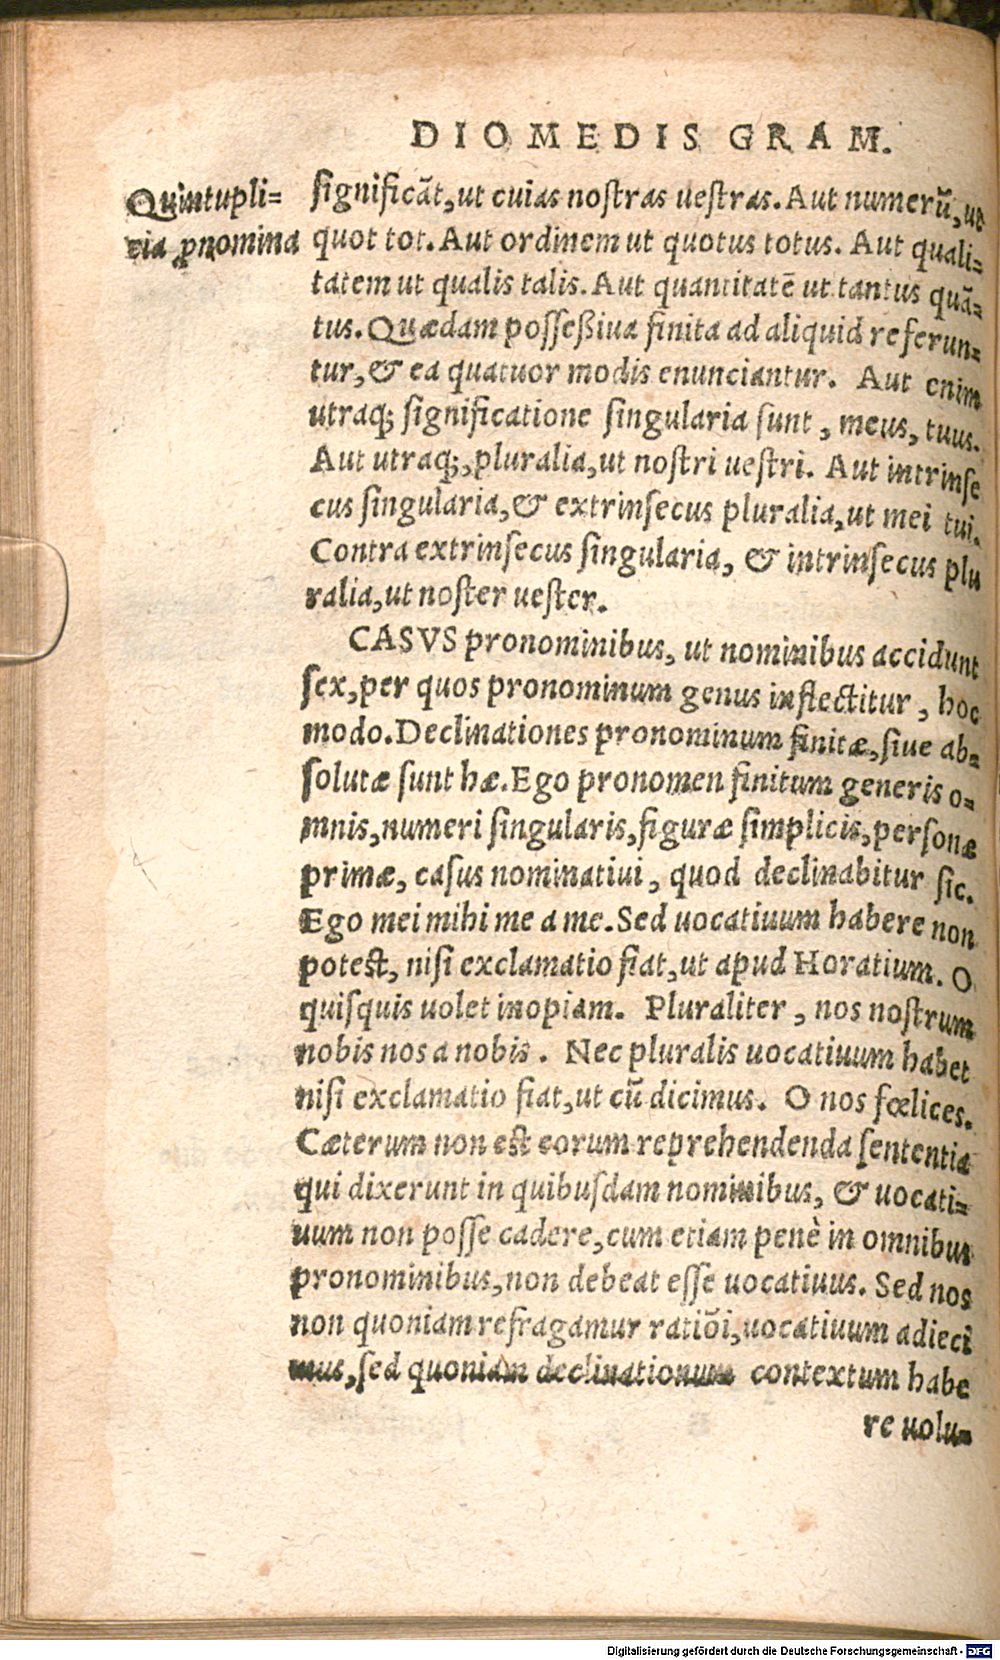 DIOMEDIS GRAM.
Quintupli=
cia ꝓnomina
significāt, ut cuias nostras uestras. Aut numerū, ut
quot tot. Aut ordinem ut quotus totus. Aut quali=
tatem ut qualis talis. Aut quantitatē ut tantus quā=
tus. Quædam posseßiua finita ad aliquid referun=
tur, & ea quatuor modis enunciantur. Aut enim
utraq; significatione singularia sunt, meus, tuus.
Aut utraq;, pluralia, ut nostri uestri. Aut intrinse
cus singularia, & extrinsecus pluralia, ut mei tui.
Contra extrinsecus singularia, & intrinsecus plu
ralia, ut noster uester.
CASVS pronominibus, ut nominibus accidunt
sex, per quos pronominum genus inflectitur, hoc
modo. Declinationes pronominum finitæ, siue ab=
solutæ sunt hæ. Ego pronomen finitum generis o=
mnis, numeri singularis, figuræ simplicis, personæ
primæ, casus nominatiui, quod declinabitur sic.
Ego mei mihi me a me. Sed uocatiuum habere non
potest, nisi exclamatio fiat, ut apud Horatium. O
quisquis uolet inopiam. Pluraliter, nos nostrum
nobis nos a nobis. Nec pluralis uocatiuum habet
nisi exclamatio fiat, ut cū dicimus. O nos fœlices.
Cæterum non est eorum reprehendenda sententia
qui dixerunt in quibusdam nominibus, & uocati=
uum non posse cadere, cum etiam penè in omnibus
pronominibus, non debeat esse uocatiuus. Sed nos
non quoniam refragamur ratiōi, uocatiuum adieci
mus, sed quoniam declinationum contextum habe
re uolu=
Digitalisierung gefördert durch die Deutsche Forschungsgemeinschaft - DFG